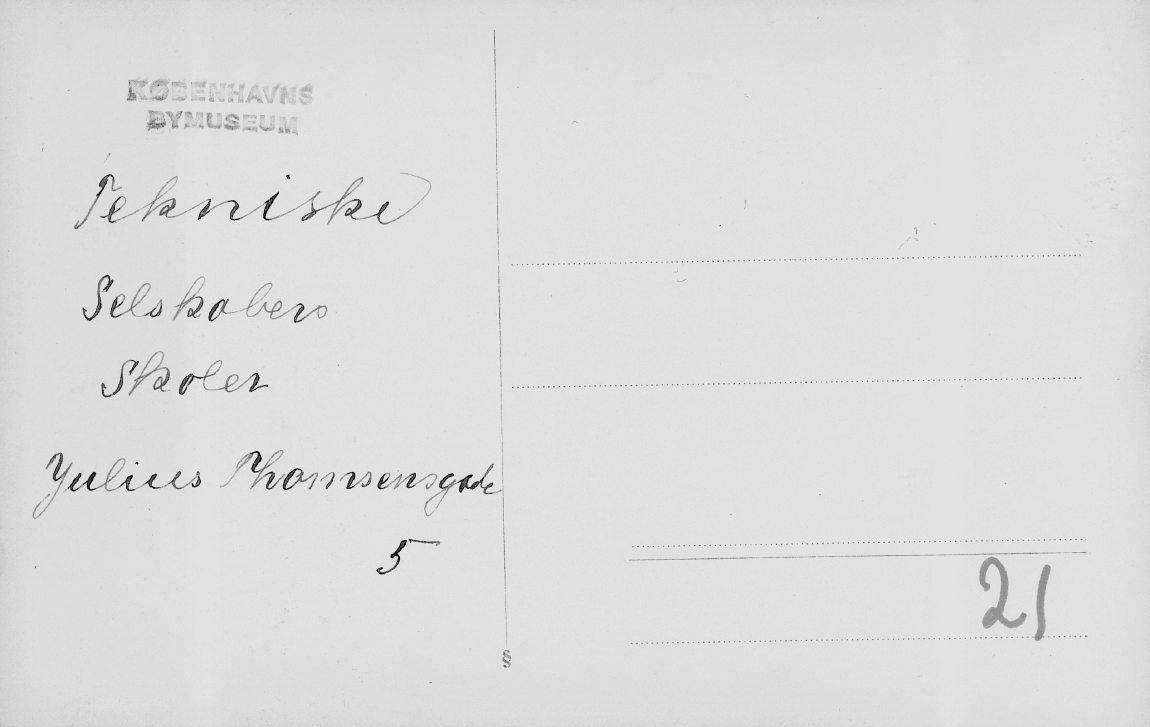 KØBENHAVNS
BYMUSEUM
Tekniske
Selskabers
Skoler
Julius Thomsensgade
5
21